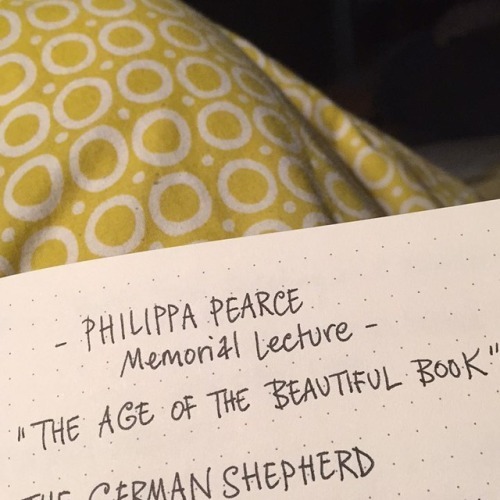 - PHILIPPA PEARCE
Memorial Lecture -
"THE AGE OF THE BEAUTIFUL BOOK"
THE GERMAN SHEPHERD